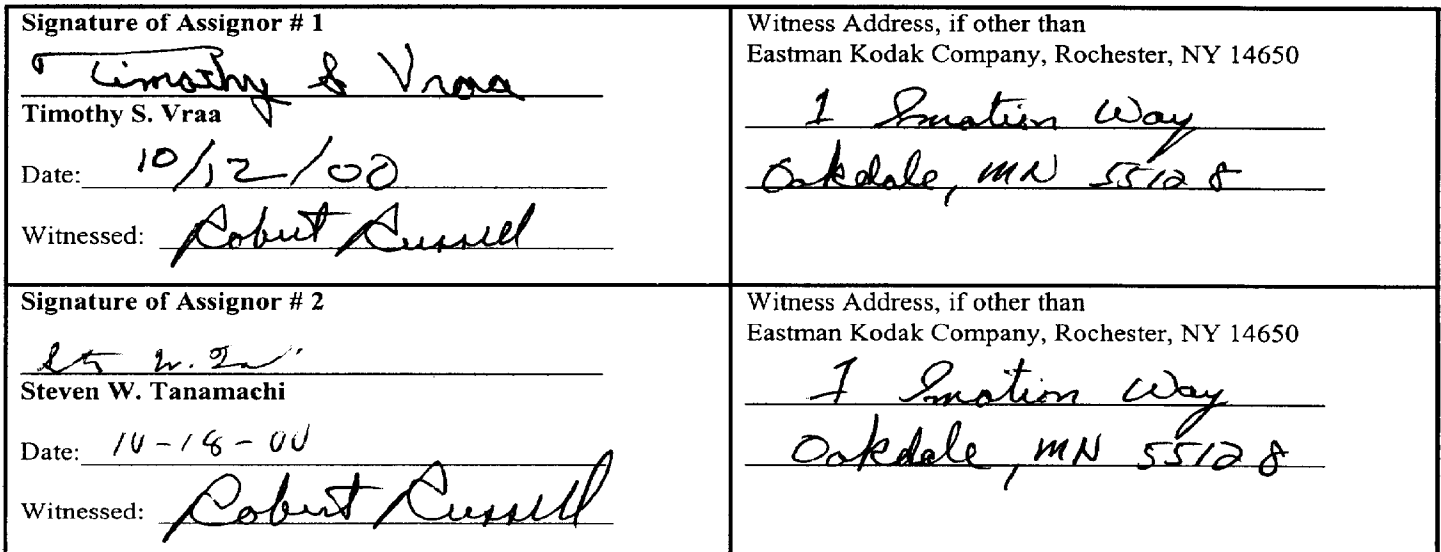 Signature of Assignor # 1
Timothy S Vraa
Timothy S. Vraa
Date: 10/12/00
Witnessed: Robert Russell
Witness Address, if other than
Eastman Kodak Company, Rochester, NY 14650
1 Imation Way
Oakdale, MN 55128
Signature of Assignor # 2
Steven W. Tanamachi
Date: 10-18-00
Witnessed: Robert Russell
Witness Address, if other than
Eastman Kodak Company, Rochester, NY 14650
1 Imation Way
Oakdale, MN 55128